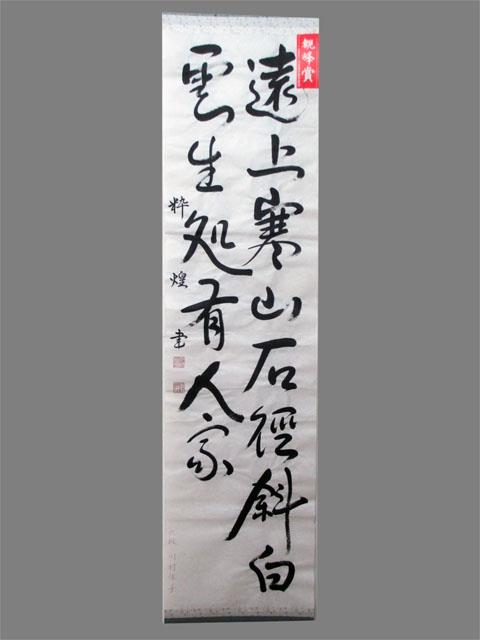 観峰賞
遠上寒山石徑斜白
雲生処有人家
粋煌書